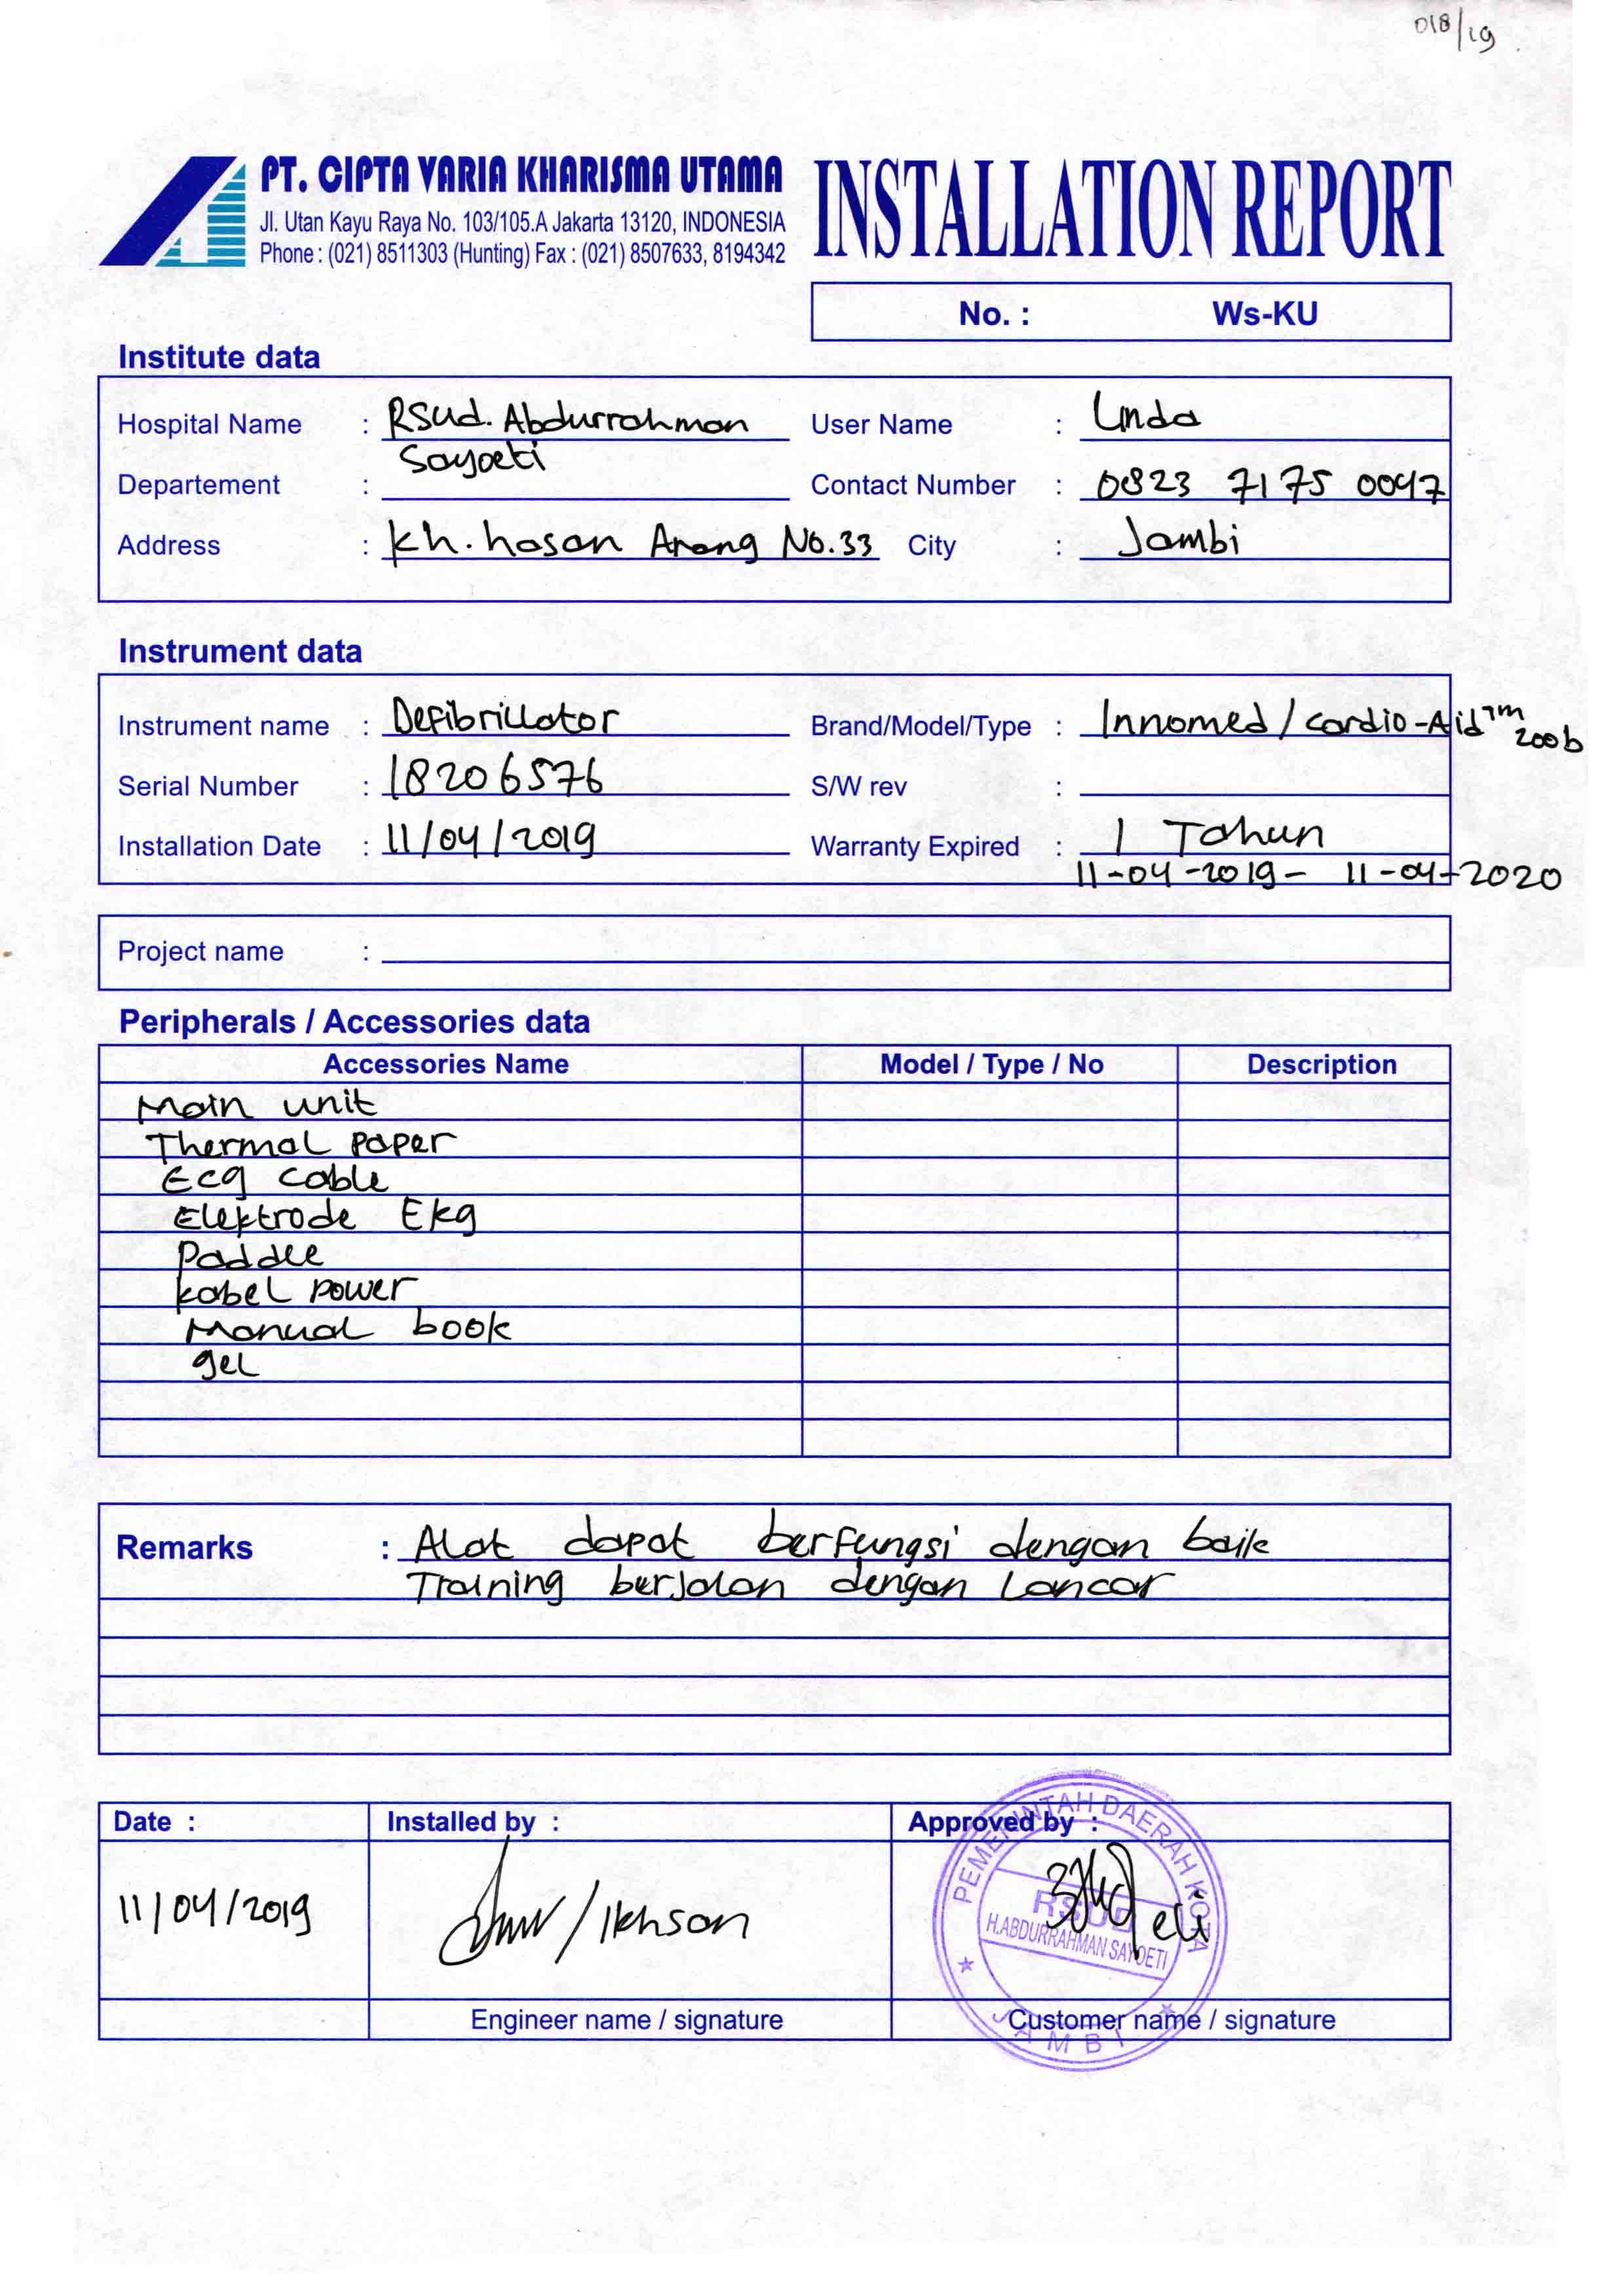 018/19
PT. CIPTA VARIA KHARISMA UTAMA
Jl. Utan Kayu Raya No. 103/105.A Jakarta 13120, INDONESIA
Phone : (021) 8511303 (Hunting) Fax : (021) 8507633, 8194342
INSTALLATION REPORT
No. : Ws-KU
Institute data
Hospital Name : RSud. Abdurrahman User Name : Linda
Sayoeti
Departement : Contact Number : 0823 7175 0047
Address : kh. hasan Arang No.33 City : Jambi
Instrument data
Instrument name : Defibrillator Brand/Model/Type : Innomed / cardio-Aid™ 200b
Serial Number : 18206576 S/W rev :
Installation Date : 11/04/2019 Warranty Expired : 1 Tahun
11-04-2019 - 11-04-2020
Project name :
Peripherals / Accessories data
Accessories Name Model / Type / No Description
Main unit
Thermal paper
Ecg cable
Elektrode Ekg
Paddle
kabel power
Manual book
gel
Remarks : Alat dapat berfungsi dengan baik
Training berjalan dengan Lancar
Date : Installed by : Approved by :
11/04/2019 / Ikhsan eli
PEMERINTAH DAERAH KOTA
RSUD
H.ABDURRAHMAN SAYOETI
JAMBI
Engineer name / signature Customer name / signature